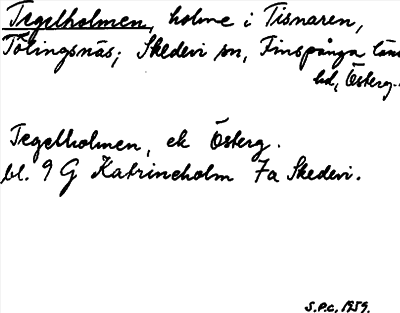 Tegelholmen, holme i Tisnaren,
Tölingsnäs; Skedevi sn, Finspånga läns
hd, Österg.
Tegelholmen, ek Österg.
bl. 9 G Katrineholm 7a Skedevi.
S.P.C. 1959.